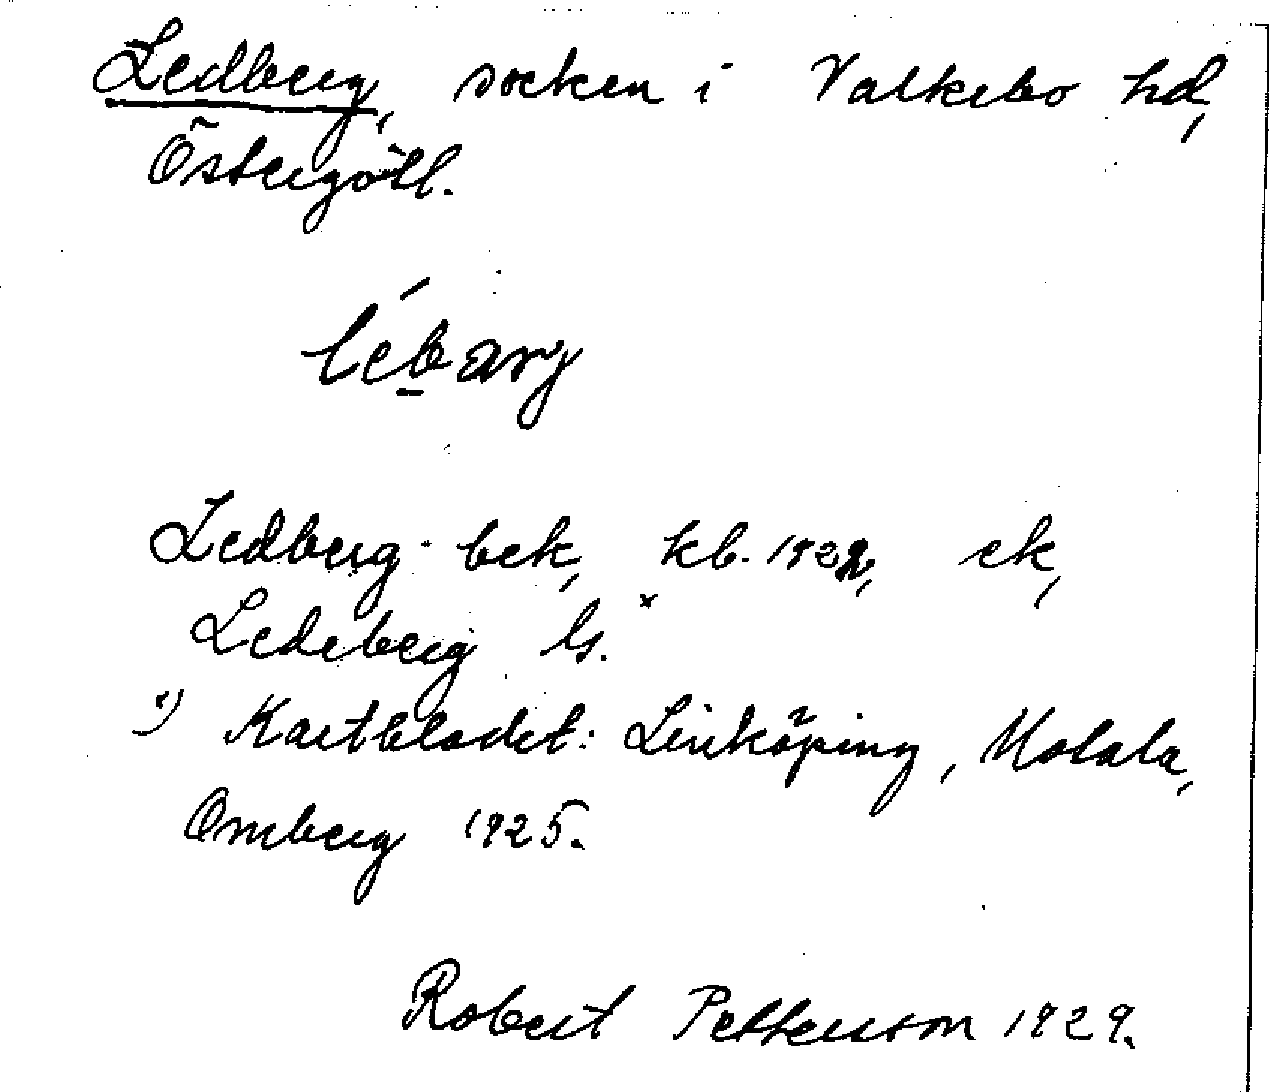 Ledberg, socken i Valkebo hd,
Östergötl.
lébarj
Ledberg- bek, kb. 1922, ek,
Ledeberg Gs.ˣ
ˣ) Kartbladet: Linköping, Motala,
Omberg 1925.
Robert Pettersson 1929.